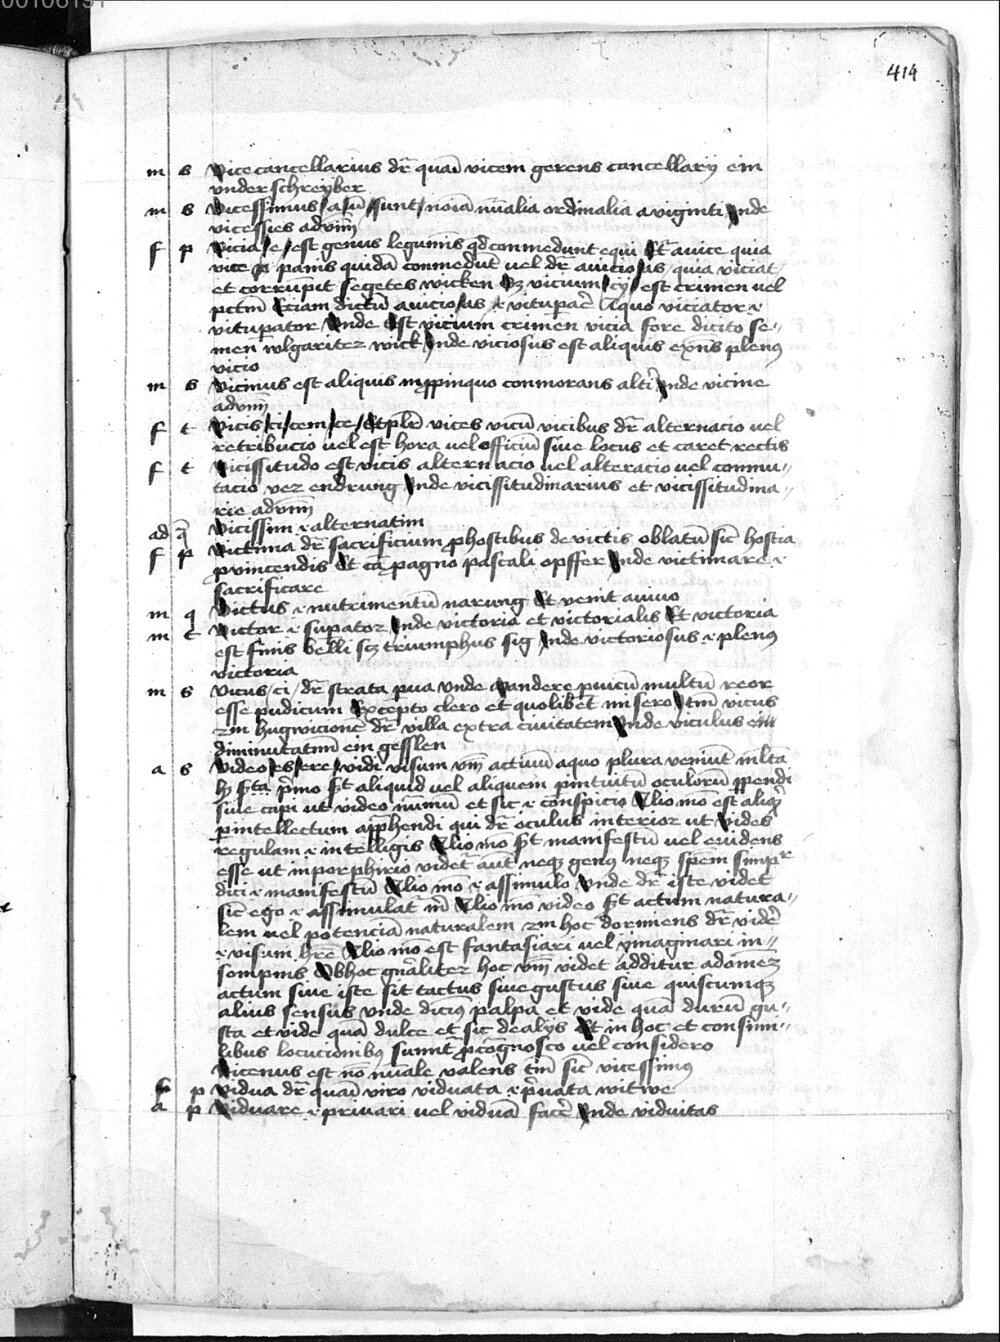 00106191
414
m s Vice cancellarius dr̄ quasi vicem gerens cancellarij ein
vnderschreyber
m s Vicessimus / a / sū / sunt / noīa nūalia ordinalia a viginti Inde
vicessies adv̄m
f p Vicia / e / est genus leguminis qd conmedunt equi Et a vice quia
vice panis quidā conmedūt vel dr̄ a vicio / as / quia viciat
et corrūpit segetes wicken vicium / cij / est crimen vel
pctm̄ Eciam dictū a vicio / as / vitupar̄e A quo viciator
vitupator Vnde Est vicium crimen vicia fore dicito se-
men wlgariter wick Inde viciosus est aliquis exn̄s plenus
vicio
m s Vicinus est aliquis in ꝓpinquo conmorans altī Inde vicine
adv̄m
f t Vicis / ci / cem / ce / Et plr̄ vices vicū vicibus dr̄ alternacio vel
retribucio vel est hora vel officiū siue locus et caret rectis
f t Vicissitudo est vicis alternacio vel alteracio vel conmu-
tacio vez endrung Inde vicissitudinarius et vicissitudina-
rie adv̄m
ad q̄ Vicissim alternatim
f p Victima dr̄ sacrificium ꝓ hostibus devictis oblatū sic̄ hostia
ꝓ vincendis Et pro agno pascali opffer Inde victimare
sacrificare
m q Victus nutrimentū narung Et venit a vivo
m t Victor supator Inde victoria et victorialis Et victoria
est finis belli sꝫ triumphus sig Inde victoriosus plenus
victoria
m s Vicus / ci / dr̄ strata pua vnde Pandere pvicū multū reor
esse pudicum Excepto clero et quolibet misero tm̄ vicus
hugwicionē dr̄ villa extra civitatem Inde viculus
diminutatm̄ ein gesslen
a s Video / es / ere / vidi visum vm̄ activū a quo plura veniūt
pmo aliquid vel aliquem pintuitū oculorū
siue capi ut video nūmū et sic conspicio Alio mō est aliqd
pintellectum app̄hendi qui dr̄ oculus interior ut Vides
regulam intelligis Alio mō manifestū vel evidens
esse ut in porphirio videt̄ aūt neqꝫ genus neqꝫ spēm simpr
dici manifestū Alio mō assimulo Vnde dr̄ iste videt
sic̄ ego assimulat̄ Alio mō video actum natura-
lem vel potenciā naturalem hoc dormiens dr̄ vidēr
visum hr̄e Alio mō est fantasiari vel ymaginari in-
sompnis Ob hoc gnāliter hoc vm̄ videt additur ad omēꝫ
actum siue iste sit tactus siue gustus siue quiscumqꝫ
alius sensus vnde dicimus palpa et vide quā durū gu-
sta et vide quā dulce et sic de alijs Et in hoc et consimi-
libus locucionibꝫ sumit̄ ꝓ cognosco vel considero
Vicenus est nō nūale valens tm̄ sic̄ vicessimus
f p Vidua dr̄ quasi viro viduata pvata witwe
a p Viduare privari vel viduā facer̄ Inde viduitas